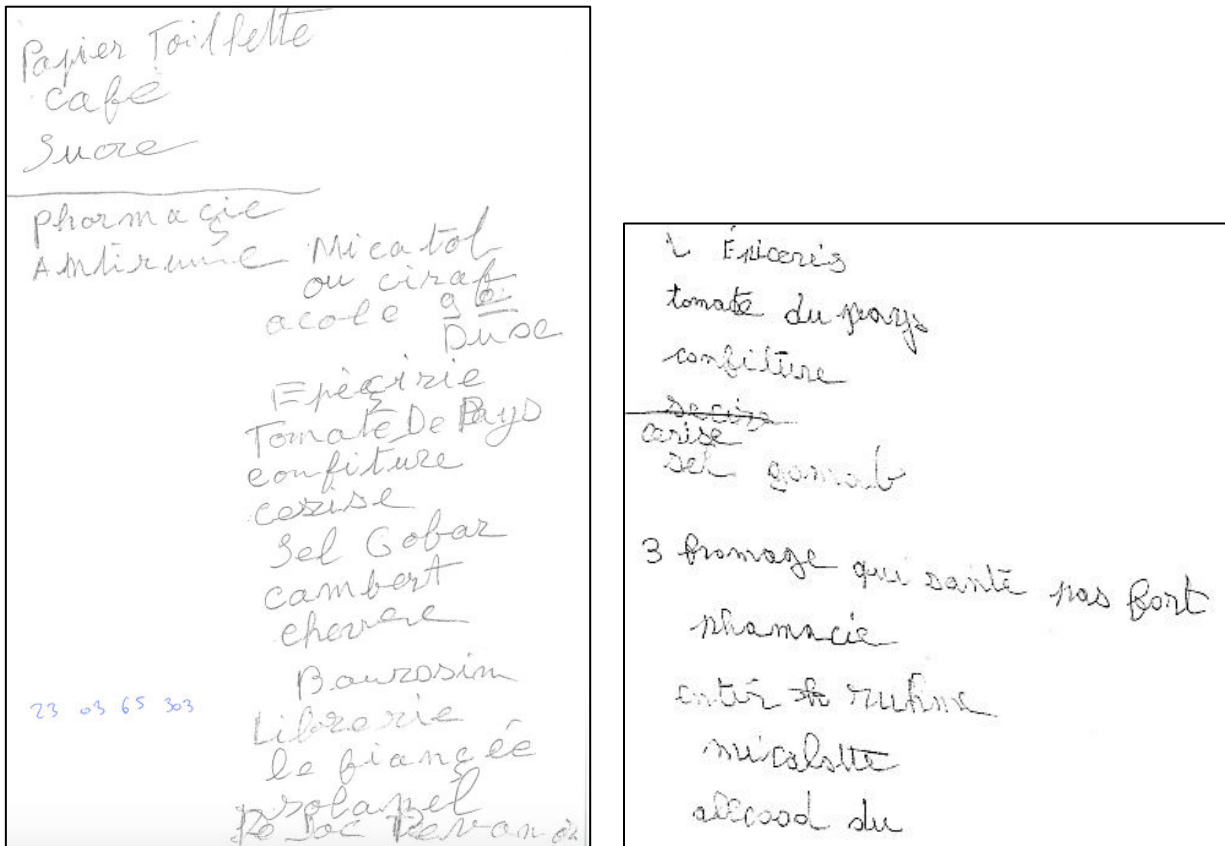 Papier Toillette
café
Sucre
Pharmaçie
Antirume Micatol
ou ciraf
acole gé
Duse
Epèçirie
Tomate De Pays
confiture
cerise
Sel Gobar
cambert
chevre
Bourosin
23 03 65 303
Librerie
le fiançée
solanel
De Joc
1 Épiceris
tomate du pays
confiture
cerise
sel gomab
3 fromage qui santé pas fort
phamacie
entir ruhme
micalotte
allcool du